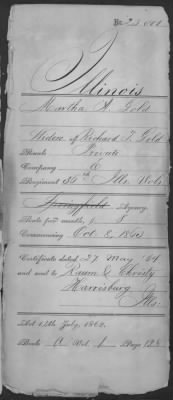 No. 23.000
Illinois
Martha A. Gold
Widow of Richard T. Gold
Rank Private
Company
Regiment Ills Vols
Springfield Agency.
Rate per month, $ 8
Commencing Oct 8, 1863
Certificate dated 27 May '64
and sent to Raum & Christy
Harrisburg
Ills.
Act 14th July, 1862.
Book A Vol. 1 Page 128